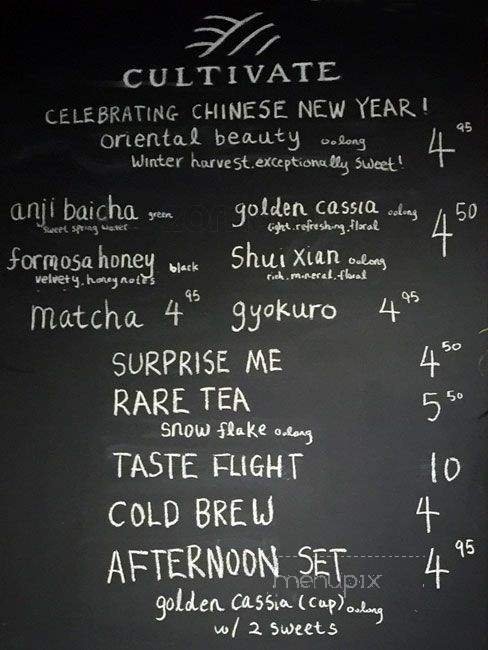 CULTIVATE
CELEBRATING CHINESE NEW YEAR!
oriental beauty oolong 4 95
Winter harvest.exceptionally sweet!
anji baicha green golden cassia oolong 4 50
sweet spring water light.refreshing.floral
formosa honey black Shui Xian oolong
velvety.honey notes rich.mineral.floral
matcha 4 95 gyokuro 4 95
SURPRISE ME 4 50
RARE TEA 5 50
snow flake oolong
TASTE FLIGHT 10
COLD BREW 4
AFTERNOON SET 4 95
menupix
golden cassia (cup) oolong
w/ 2 sweets